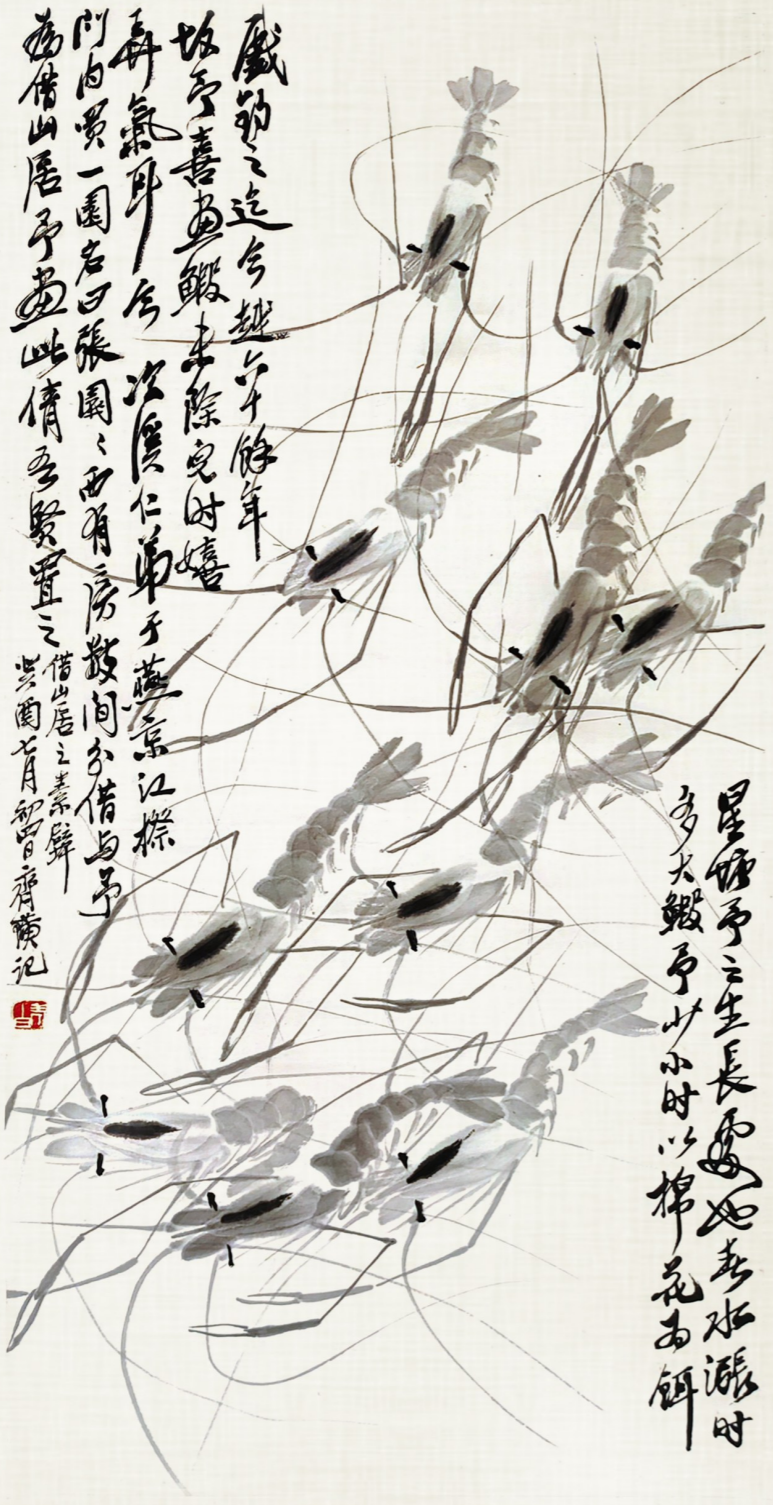 星塘予之生長處也春水漲时
多大鰕予少小时以棉花為餌
戲釣之迄今越六十餘年
故予喜畫鰕未除兒时嬉
弄氣耳今次溪仁弟于燕京江擦
門内買一園名曰張園〻西有房數間分借与予
為借山居予畫此倩吾賢置之
借山居之素壁
癸酉七月初四日齊璜記